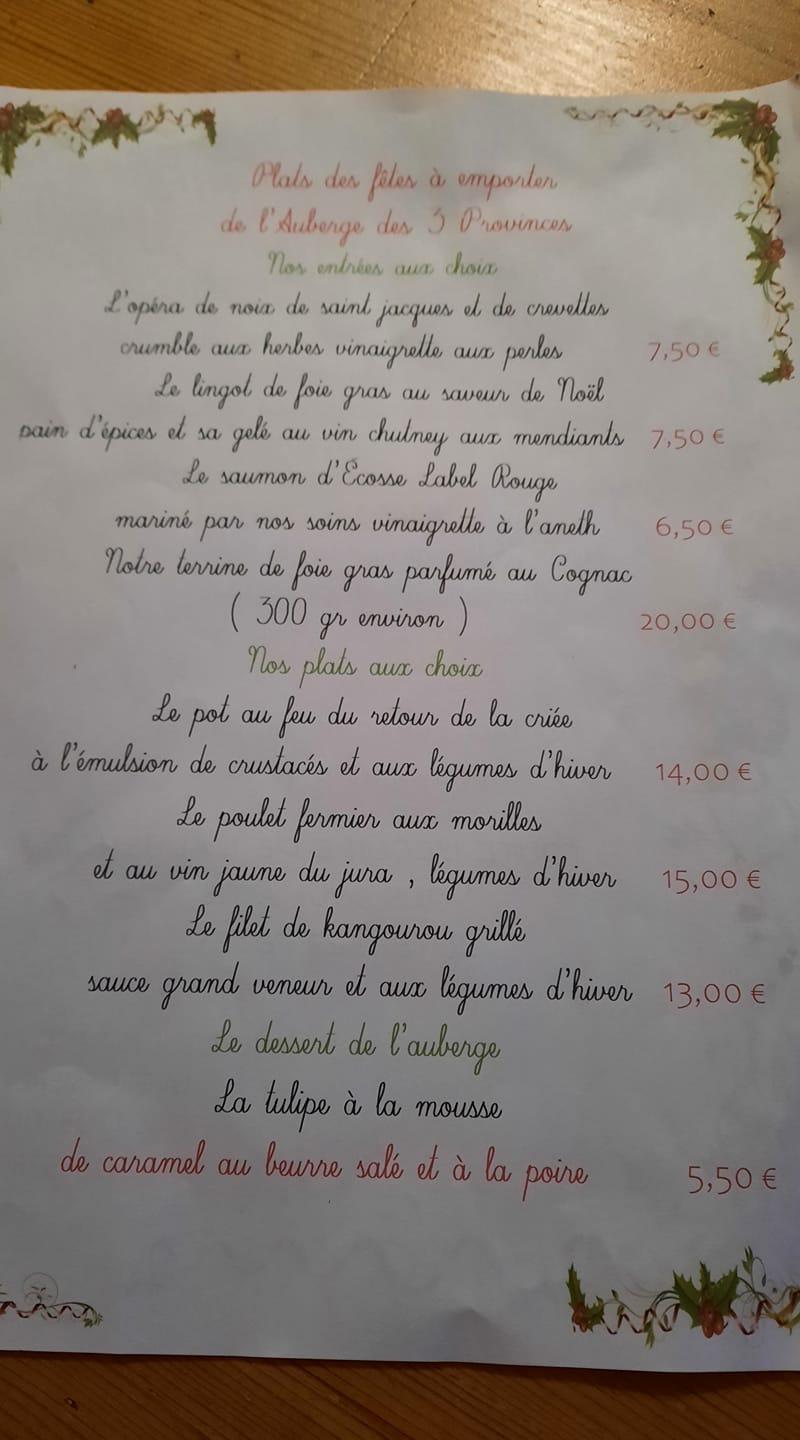 Plats des fêtes à emporter
de l'Auberge des 3 Provinces
Nos entrées aux choix
L'opéra de noix de saint jacques et de crevettes
crumble aux herbes vinaigrette aux perles 7,50 €
Le lingot de foie gras au saveur de Noël
pain d'épices et sa gelé au vin chutney aux mendiants 7,50 €
Le saumon d'Ecosse Label Rouge
mariné par nos soins vinaigrette à l'aneth 6,50 €
Notre terrine de foie gras parfumé au Cognac
( 300 gr environ ) 20,00 €
Nos plats aux choix
Le pot au feu du retour de la criée
à l'émulsion de crustacés et aux légumes d'hiver 14,00 €
Le poulet fermier aux morilles
et au vin jaune du jura , légumes d'hiver 15,00 €
Le filet de kangourou grillé
sauce grand veneur et aux légumes d'hiver 13,00 €
Le dessert de l'auberge
La tulipe à la mousse
de caramel au beurre salé et à la poire 5,50 €